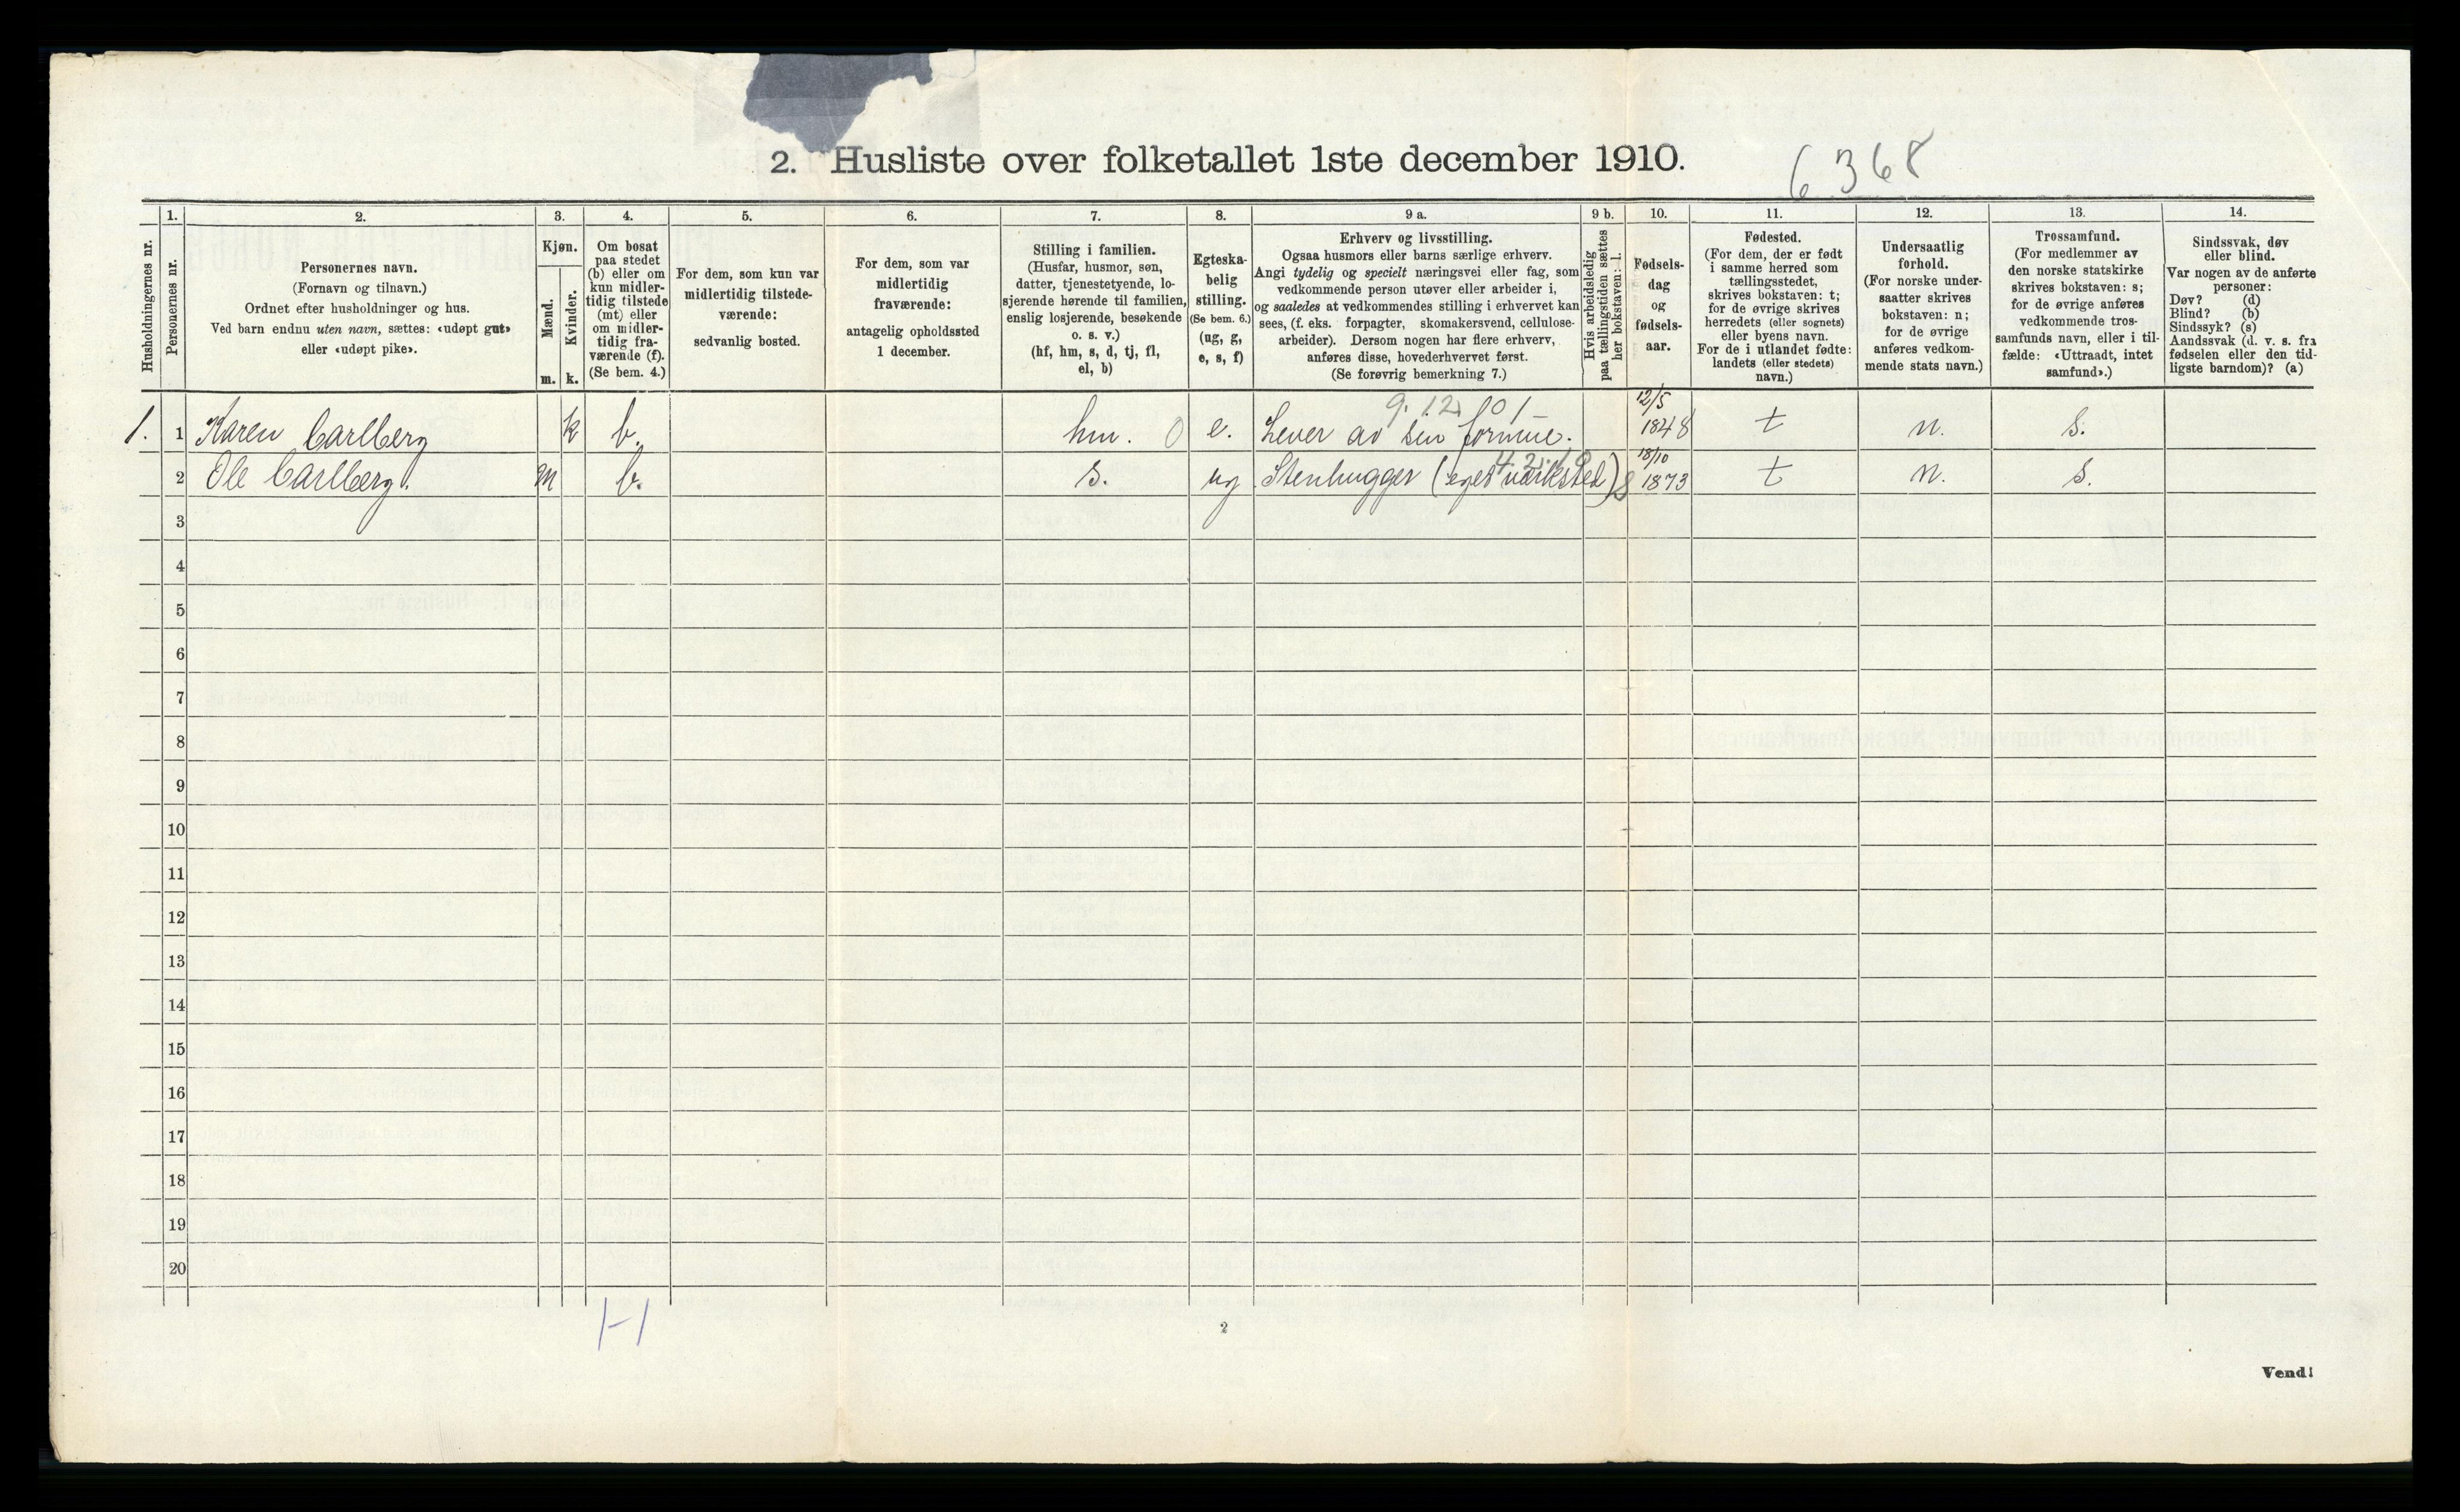 2. Husliste over folketallet 1ste december 1910.
6368
Husholdningernes nr.
1.
Personernes nr.
2.
Personernes navn.
(Fornavn og tilnavn.)
Ordnet efter husholdninger og hus.
Ved barn endnu uten navn, sættes: «udøpt gut»
eller «udøpt pike».
3.
Kjøn.
Mænd.
Kvinder.
m. k.
4.
Om bosat
paa stedet
(b) eller om
kun midler-
tidig tilstede
(mt) eller
om midler-
tidig fra-
værende (f).
(Se bem. 4.)
5.
For dem, som kun var
midlertidig tilstede-
værende:
sedvanlig bosted.
6.
For dem, som var
midlertidig
fraværende:
antagelig opholdssted
1 december.
7.
Stilling i familien.
(Husfar, husmor, søn,
datter, tjenestetyende, lo-
sjerende hørende til familien,
enslig losjerende, besøkende
o. s. v.)
(hf, hm, s, d, tj, fl,
el, b)
8.
Egteska-
belig
stilling.
(Se bem. 6.)
(ug, g,
e, s, f)
9 a.
Erhverv og livsstilling.
Ogsaa husmors eller barns særlige erhverv.
Angi tydelig og specielt næringsvei eller fag, som
vedkommende person utøver eller arbeider i,
og saaledes at vedkommendes stilling i erhvervet kan
sees, (f. eks. forpagter, skomakersvend, cellulose-
arbeider). Dersom nogen har flere erhverv,
anføres disse, hovederhvervet først.
(Se forøvrig bemerkning 7.)
9 b.
Hvis arbeidsledig
paa tællingstiden sættes
her bokstaven: l.
10.
Fødsels-
dag
og
fødsels-
aar.
11.
Fødested.
(For dem, der er født
i samme herred som
tællingsstedet,
skrives bokstaven: t;
for de øvrige skrives
herredets (eller sognets)
eller byens navn.
For de i utlandet fødte:
landets (eller stedets)
navn.)
12.
Undersaatlig
forhold.
(For norske under-
saatter skrives
bokstaven: n;
for de øvrige
anføres vedkom-
mende stats navn.)
13.
Trossamfund.
(For medlemmer av
den norske statskirke
skrives bokstaven: s;
for de øvrige anføres
vedkommende tros-
samfunds navn, eller i til-
fælde: «Uttraadt, intet
samfund».)
14.
Sindssvak, døv
eller blind.
Var nogen av de anførte
personer:
Døv? (d)
Blind? (b)
Sindssyk? (s)
Aandssvak (d. v. s. fra
fødselen eller den tid-
ligste barndom)? (a)
9.12.101- 12/5
1. 1 Karen Carlberg k b. hm. 0 e. Lever av sin formue. 1848 t n. s.
18/10
2 Ole Carlberg. m b. s. ug Stenhugger (eget verksted) 1873 t n. s.
3
4
5
6
7
8
9
10
11
12
13
14
15
16
17
18
19
20
1-1
2
Vend!